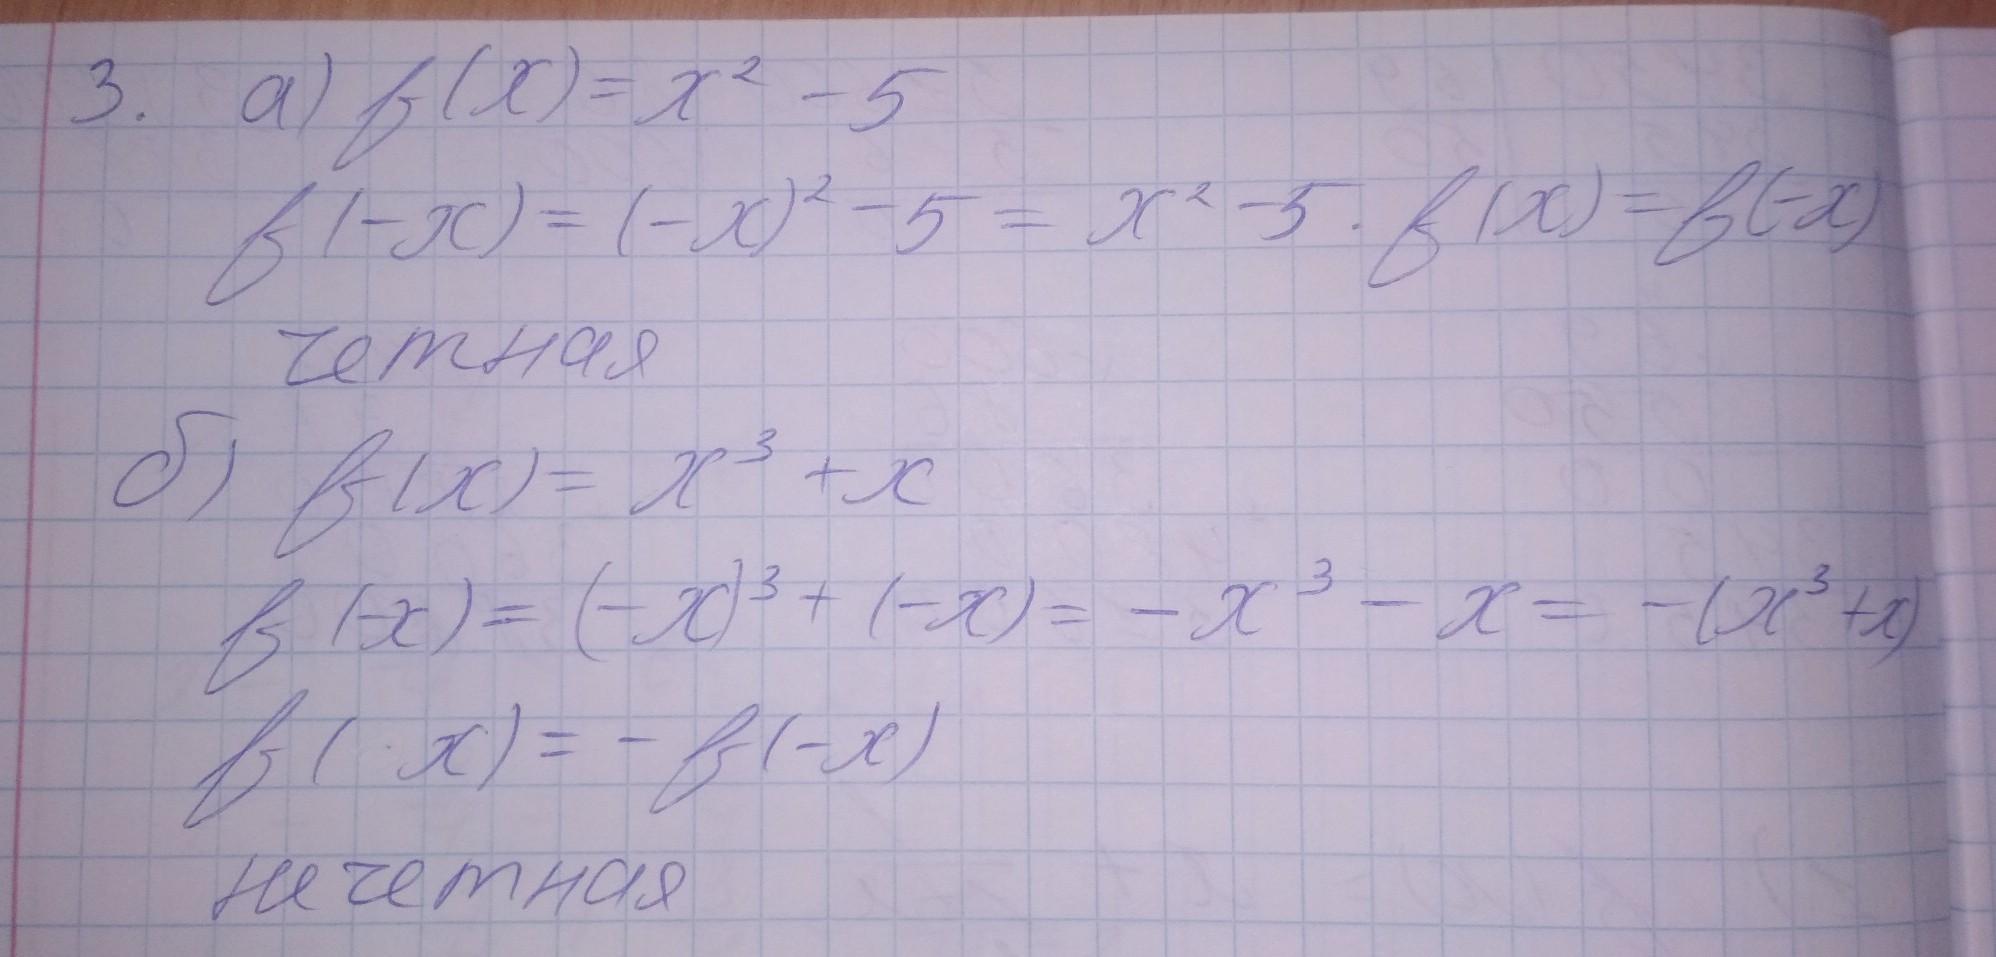 3. а) f(x) = x² - 5
f(-x) = (-x)² - 5 = x² - 5. f(x) = f(-x)
четная
б) f(x) = x³ + x
f(-x) = (-x)³ + (-x) = -x³ - x = -(x³ + x)
f( x) = - f(-x)
нечетная